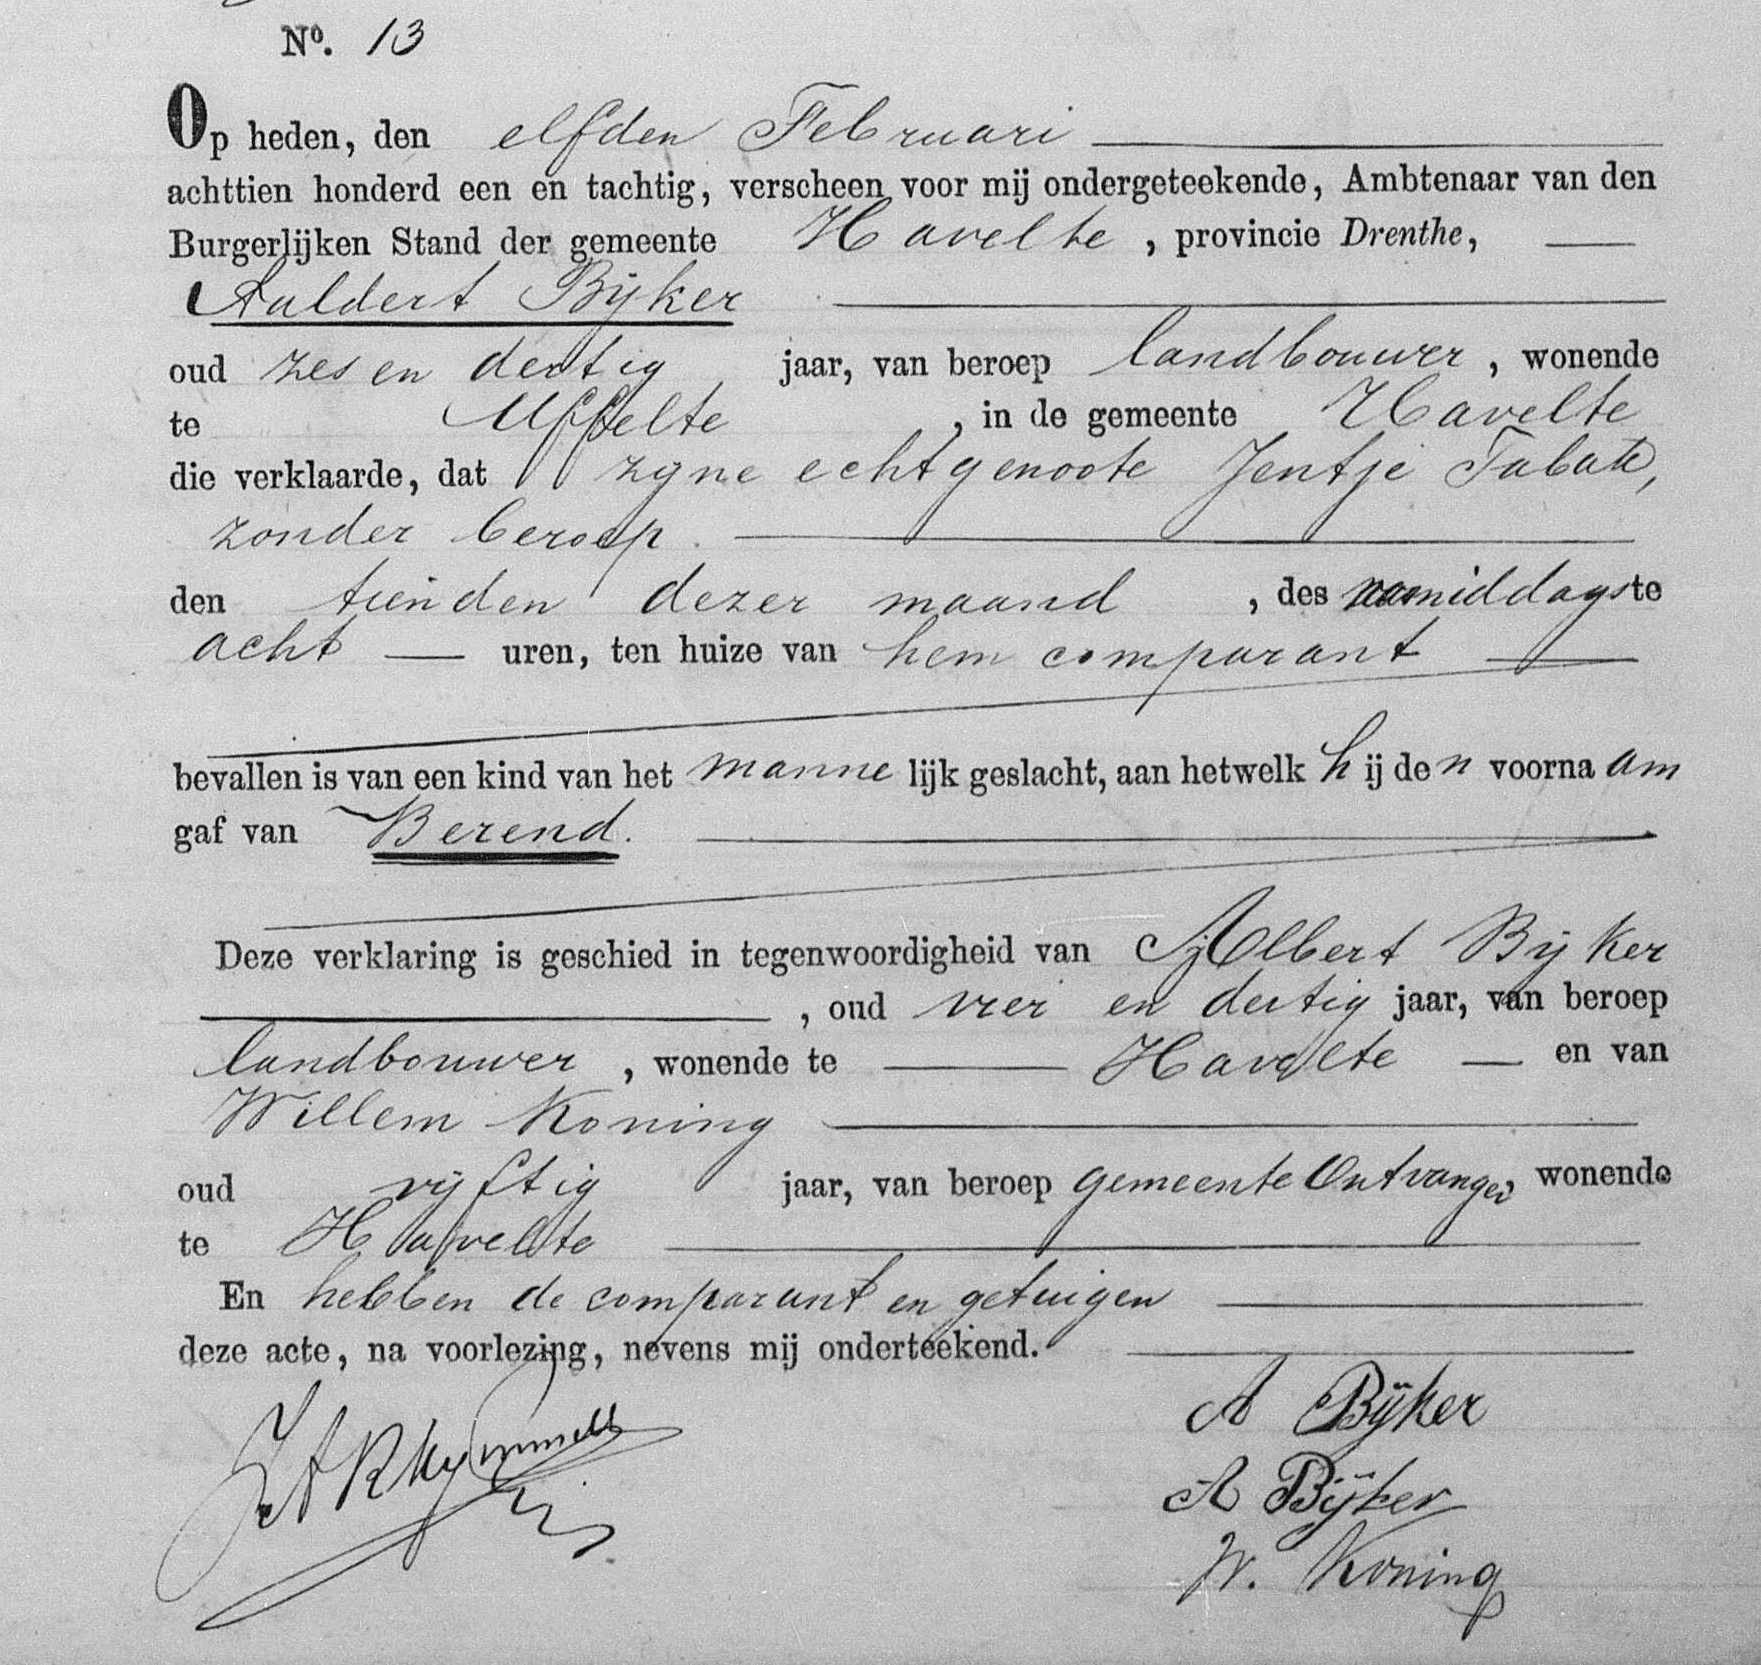 Nº. 13
Op heden, den elfden Februari
achttien honderd een en tachtig, verscheen voor mij ondergeteekende, Ambtenaar van den
Burgerlijken Stand der gemeente Havelte, provincie Drenthe,
Aaldert Bijker
oud zes en dertig jaar, van beroep landbouwer, wonende
te Uffelte, in de gemeente Havelte
die verklaarde, dat zijne echtgenoote Jentje Tabak,
zonder beroep.
den tienden dezer maand, des namiddags te
acht uren, ten huize van hem comparant
bevallen is van een kind van het mannelijk geslacht, aan hetwelk hij den voornaam
gaf van Berend.
Deze verklaring is geschied in tegenwoordigheid van Albert Bijker
, oud vier en dertig jaar, van beroep
landbouwer, wonende te Havelte en van
Willem Koning
oud vijftig jaar, van beroep gemeente Ontvanger, wonende
te Havelte
En hebben de comparant en getuigen
deze acte, na voorlezing, nevens mij onderteekend.
A Bijker
A Bijker
W. Koning